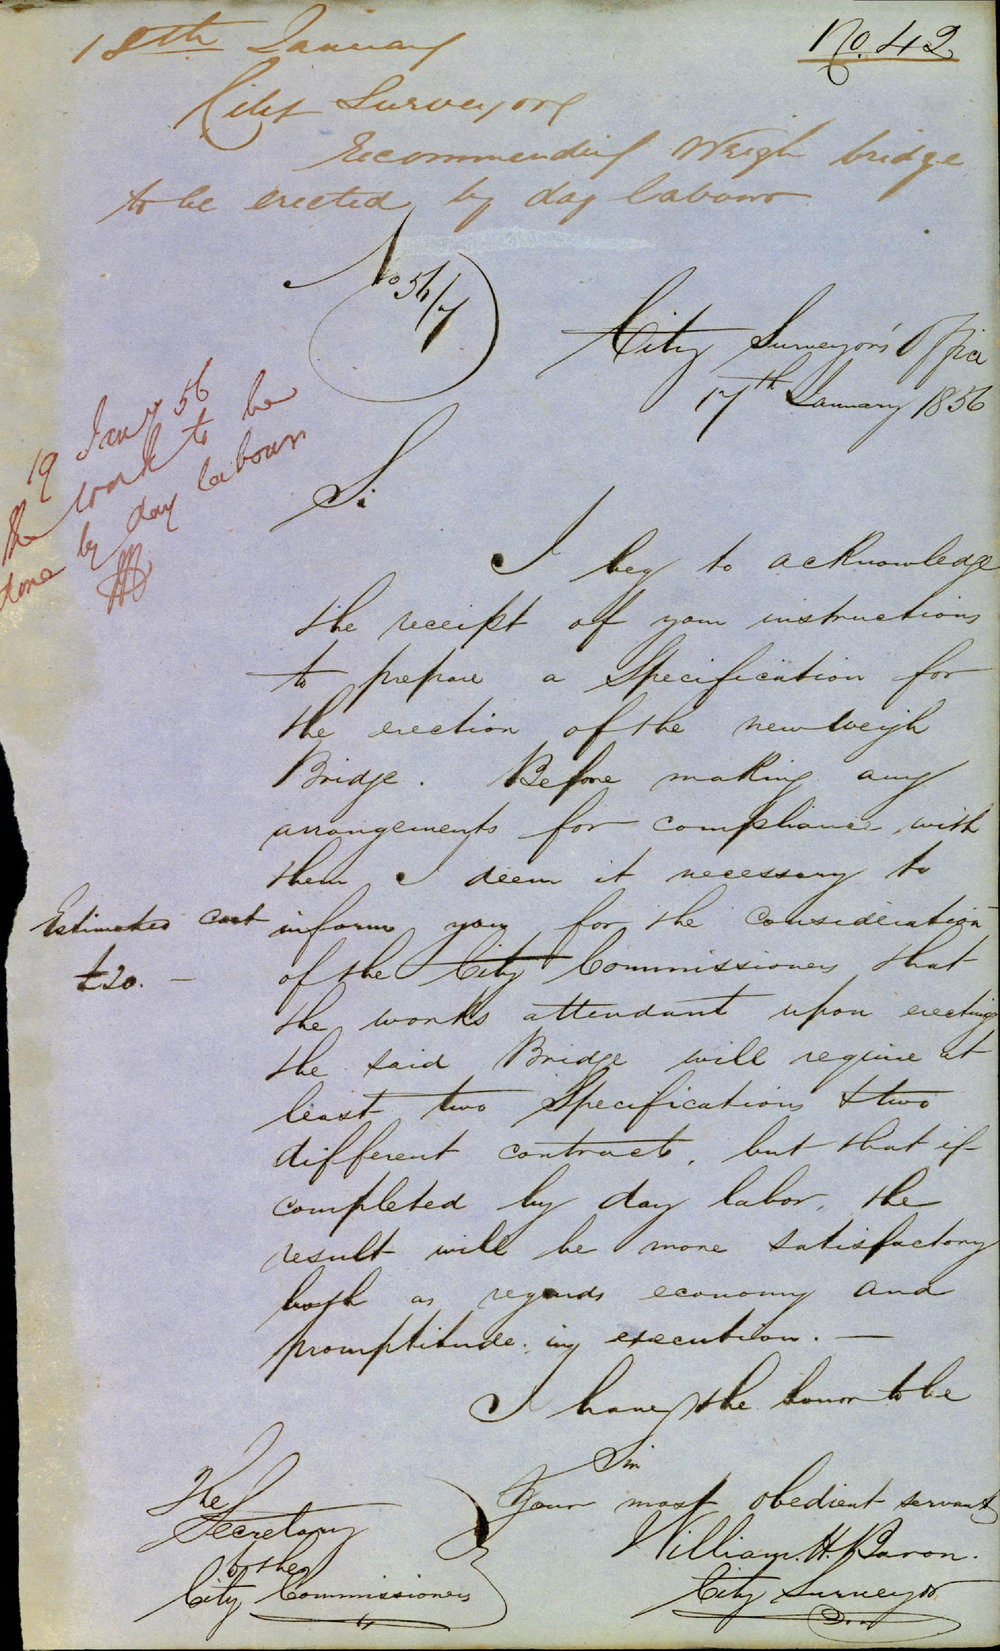 No. 42
18th January
City Surveyor
Recommending Weigh bridge
to be erected by day labour
No 56/7
City Surveyor's Office
17th January 1856
19 Jany 56
The work to be
done by day labour
Sir
I beg to acknowledge
the receipt of your instructions
to prepare a Specification for
the erection of the new Weigh
Bridge. Before making any
arrangements for compliance with
them I deem it necessary to
inform you for the consideration
Estimated cost
£20. —
of the City Commissioners that
the works attendant upon erecting
the said Bridge will require at
least two Specifications & two
different contracts, but that if
completed by day labor, the
result will be more satisfactory
both as regards economy and
promptitude in execution. —
I have the honor to be
Sir
Your most obedient servant
William. H. Baron.
City Surveyor
The
Secretary
to the
City Commissioners